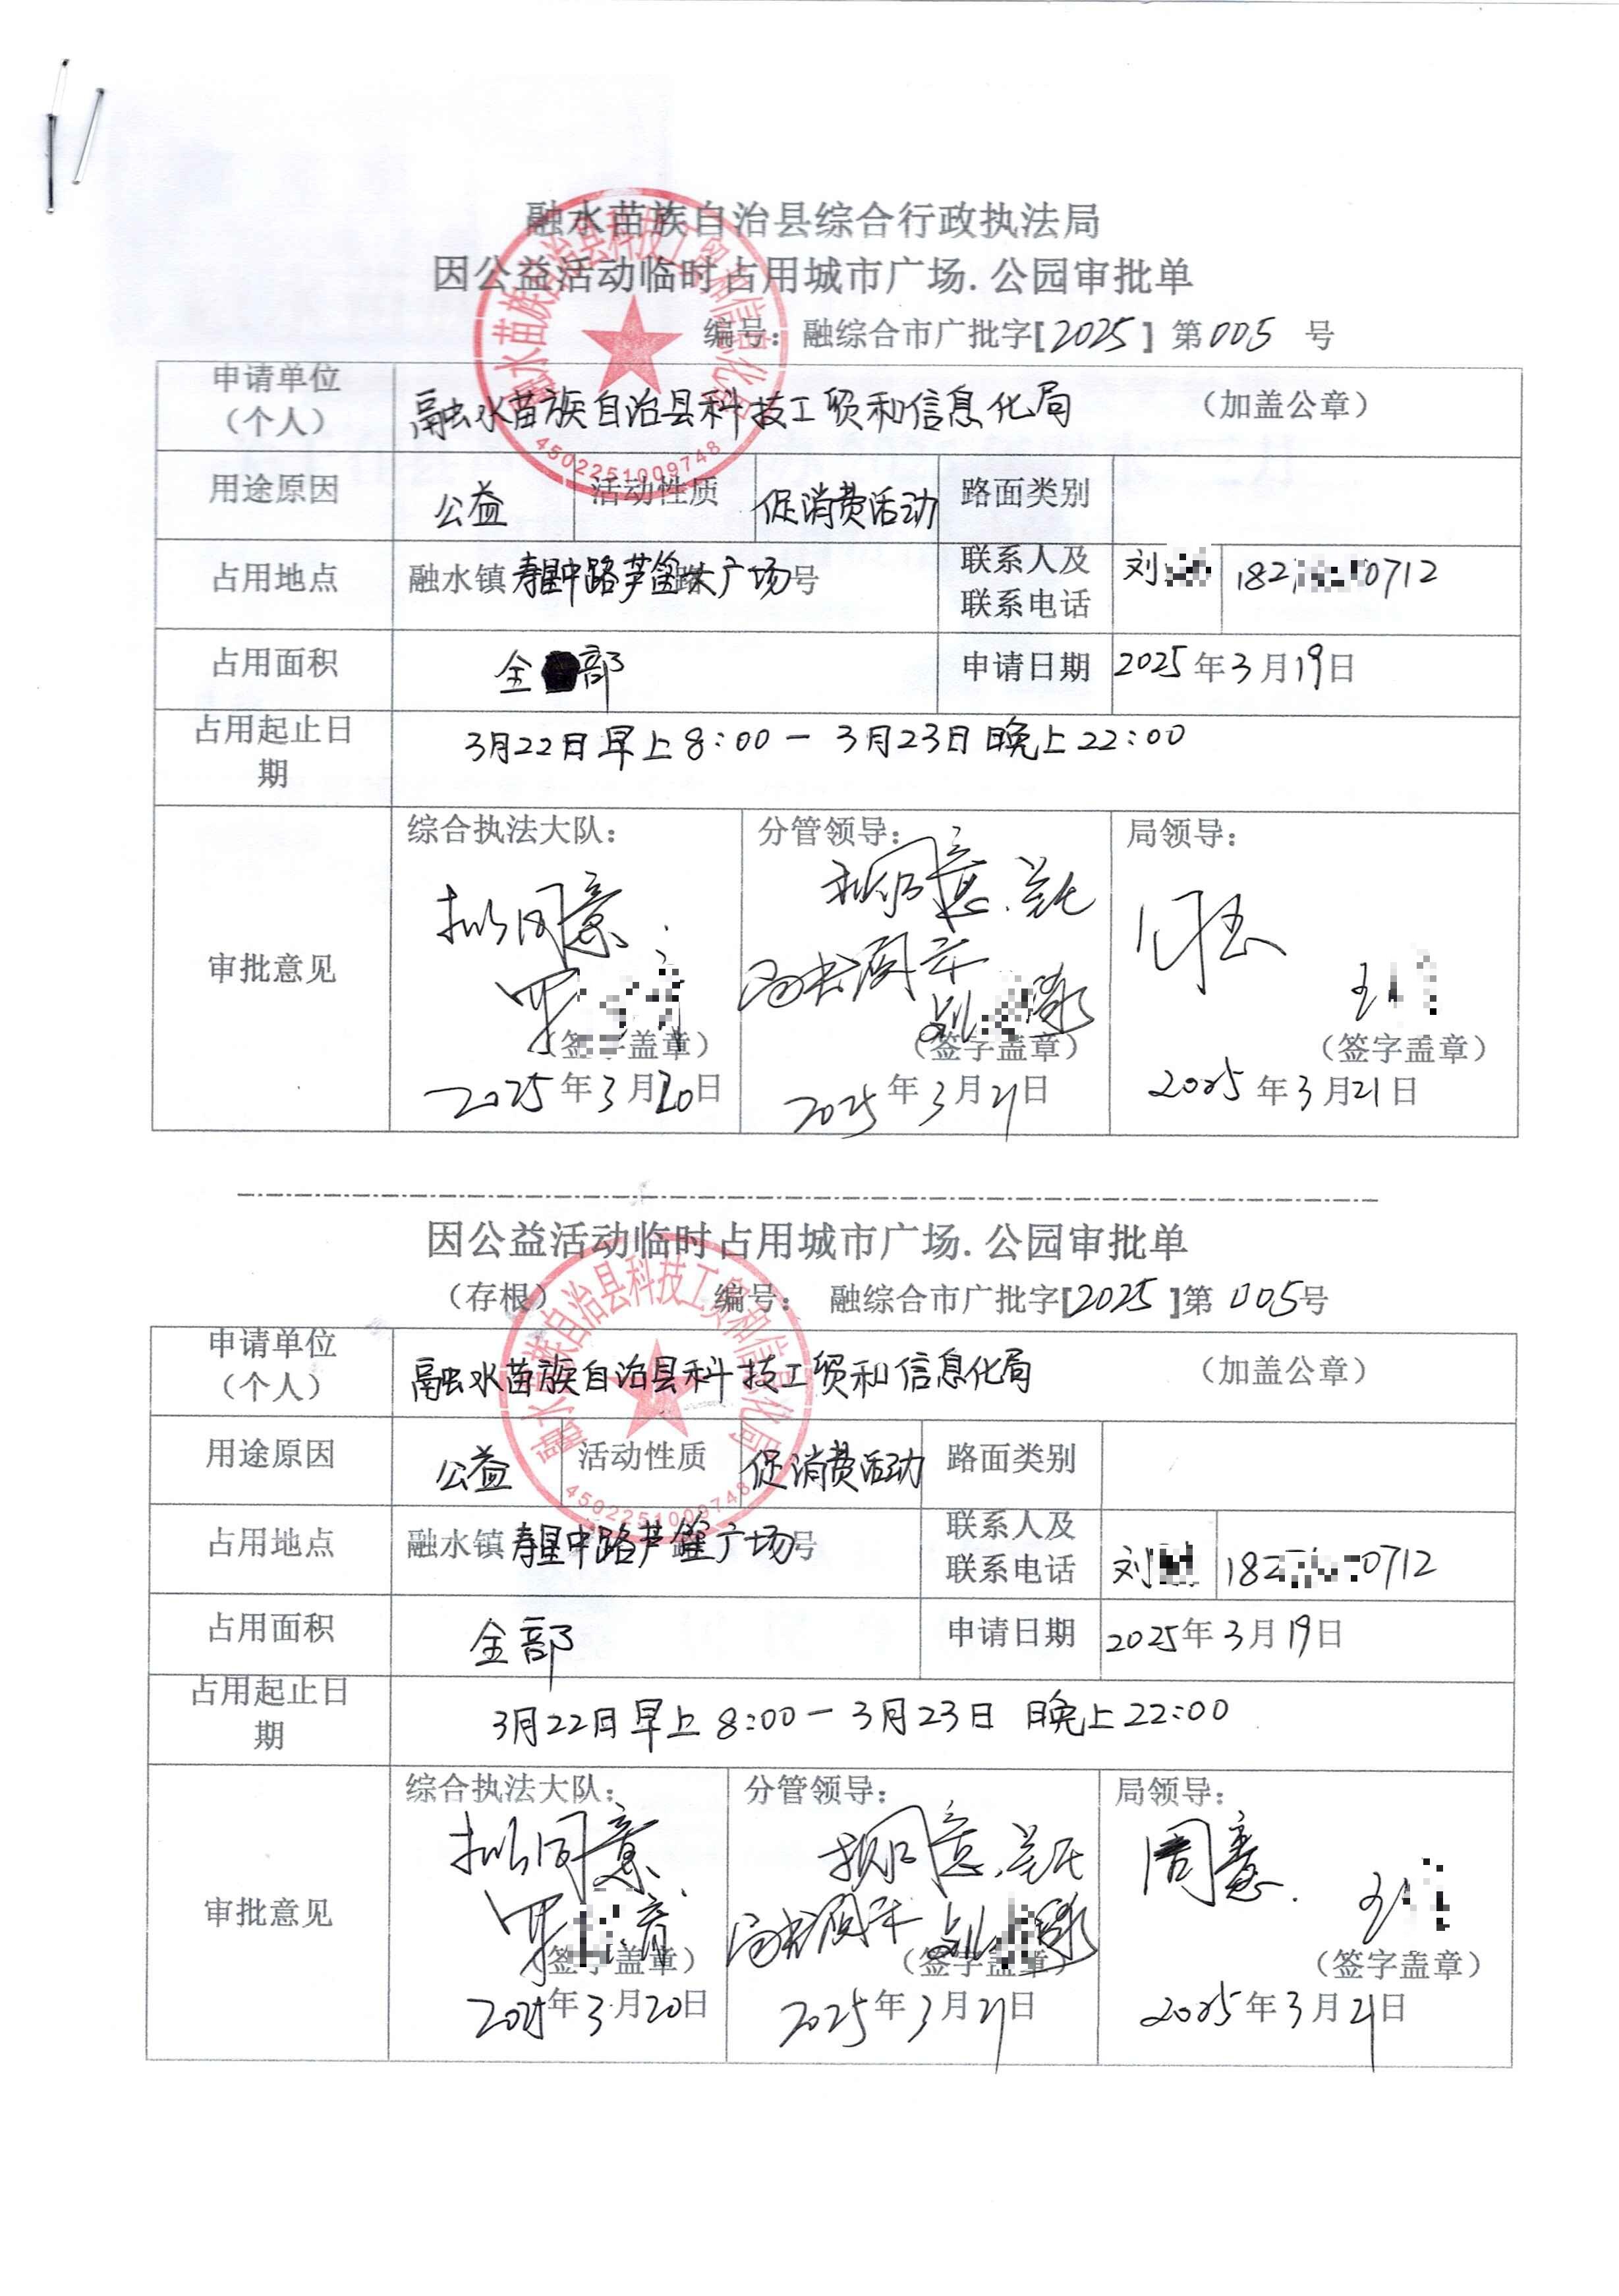 融水苗族自治县综合行政执法局
因公益活动临时占用城市广场.公园审批单
编号：融综合市广批字[2025]第005号
申请单位（个人） 融水苗族自治县科技工贸和信息化局 （加盖公章）
用途原因 公益 活动性质 促消费活动 路面类别
占用地点 融水镇寿星中路芦笙广场号 联系人及联系电话 刘 182 0712
占用面积 全部 申请日期 2025年3月19日
占用起止日期 3月22日早上8:00-3月23日晚上22:00
审批意见
综合执法大队： 分管领导： 局领导：
拟同意. 拟同意.
（签字盖章） （签字盖章） （签字盖章）
2025年3月20日 2025年3月21日 2025年3月21日
融水苗族自治县科技工贸和信息化局
4502251009748
因公益活动临时占用城市广场.公园审批单
（存根） 编号：融综合市广批字[2025]第005号
申请单位（个人） 融水苗族自治县科技工贸和信息化局 （加盖公章）
用途原因 公益 活动性质 促消费活动 路面类别
占用地点 融水镇寿星中路芦笙广场号 联系人及联系电话 刘 182 0712
占用面积 全部 申请日期 2025年3月19日
占用起止日期 3月22日早上8:00-3月23日晚上22:00
审批意见
综合执法大队： 分管领导： 局领导：
拟同意. 拟同意.
（签字盖章） （签字盖章） （签字盖章）
2025年3月20日 2025年3月21日 2025年3月21日
融水苗族自治县科技工贸和信息化局
4502251009748